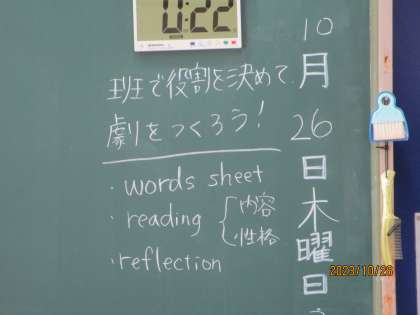 0:22
10月26日木曜日
班で役割を決めて
劇をつくろう!
・words sheet
・reading { 内容
性格
・reflection
2023/10/26